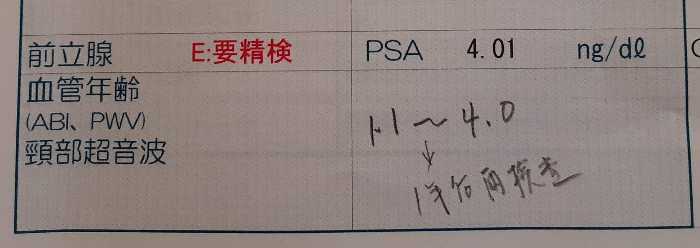 前立腺 E:要精検 PSA 4.01 ng/dl
血管年齢
(ABI、PWV)
～ 4.0
頸部超音波
↓
1年 再検査